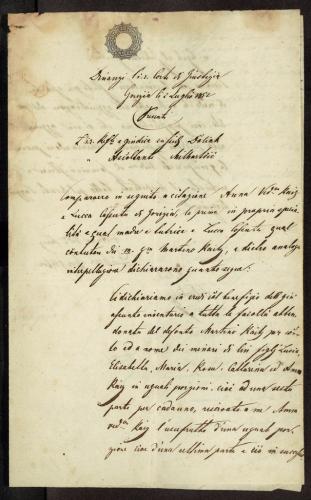 Dinanzi l'i. r. Corte di Giustizia
Gorizia li 2 Luglio 1852
Presenti
L'i. r. e giudice Doliak
" Ascoltante
Comparvero in seguito a citazione Anna Ved.a Kaiz
e Lucca di Gorizia, la prima in propria speciali-
tà e qual madre e tutrice e Lucca qual
contutore dei m. qm Martino Kaiz, e dietro analoga
interpellazione dichiararono quanto segue:
Ci dichiariamo in eredi col beneficio dell già
assunto inventario a tutta la facoltà abban-
donata del defonto Martino Kaiz per
ed a nome dei minori di lui figlj Lucia,
Elisabetta, Maria, Rosa, Catterina ed Anna
Kaiz in uguali porzioni, cioè ad una sesta
parte per cadauno, riservato a me Anna
ved.a Kaiz l'usufrutto d'una uguale por-
zione cioè d'una settima parte e ciò in